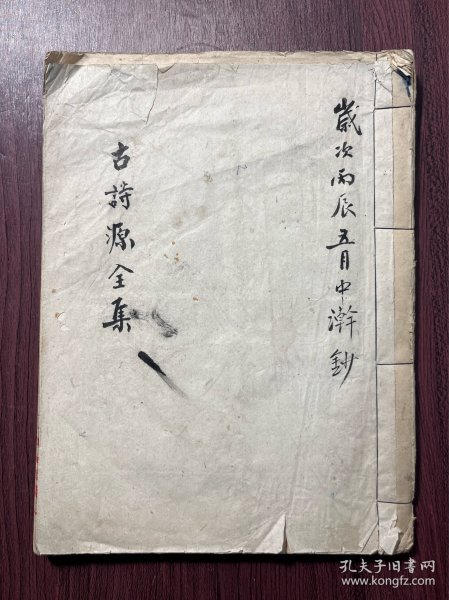 歲次丙辰五月中澣鈔
古詩源全集
孔夫子旧书网
www.kongfz.com